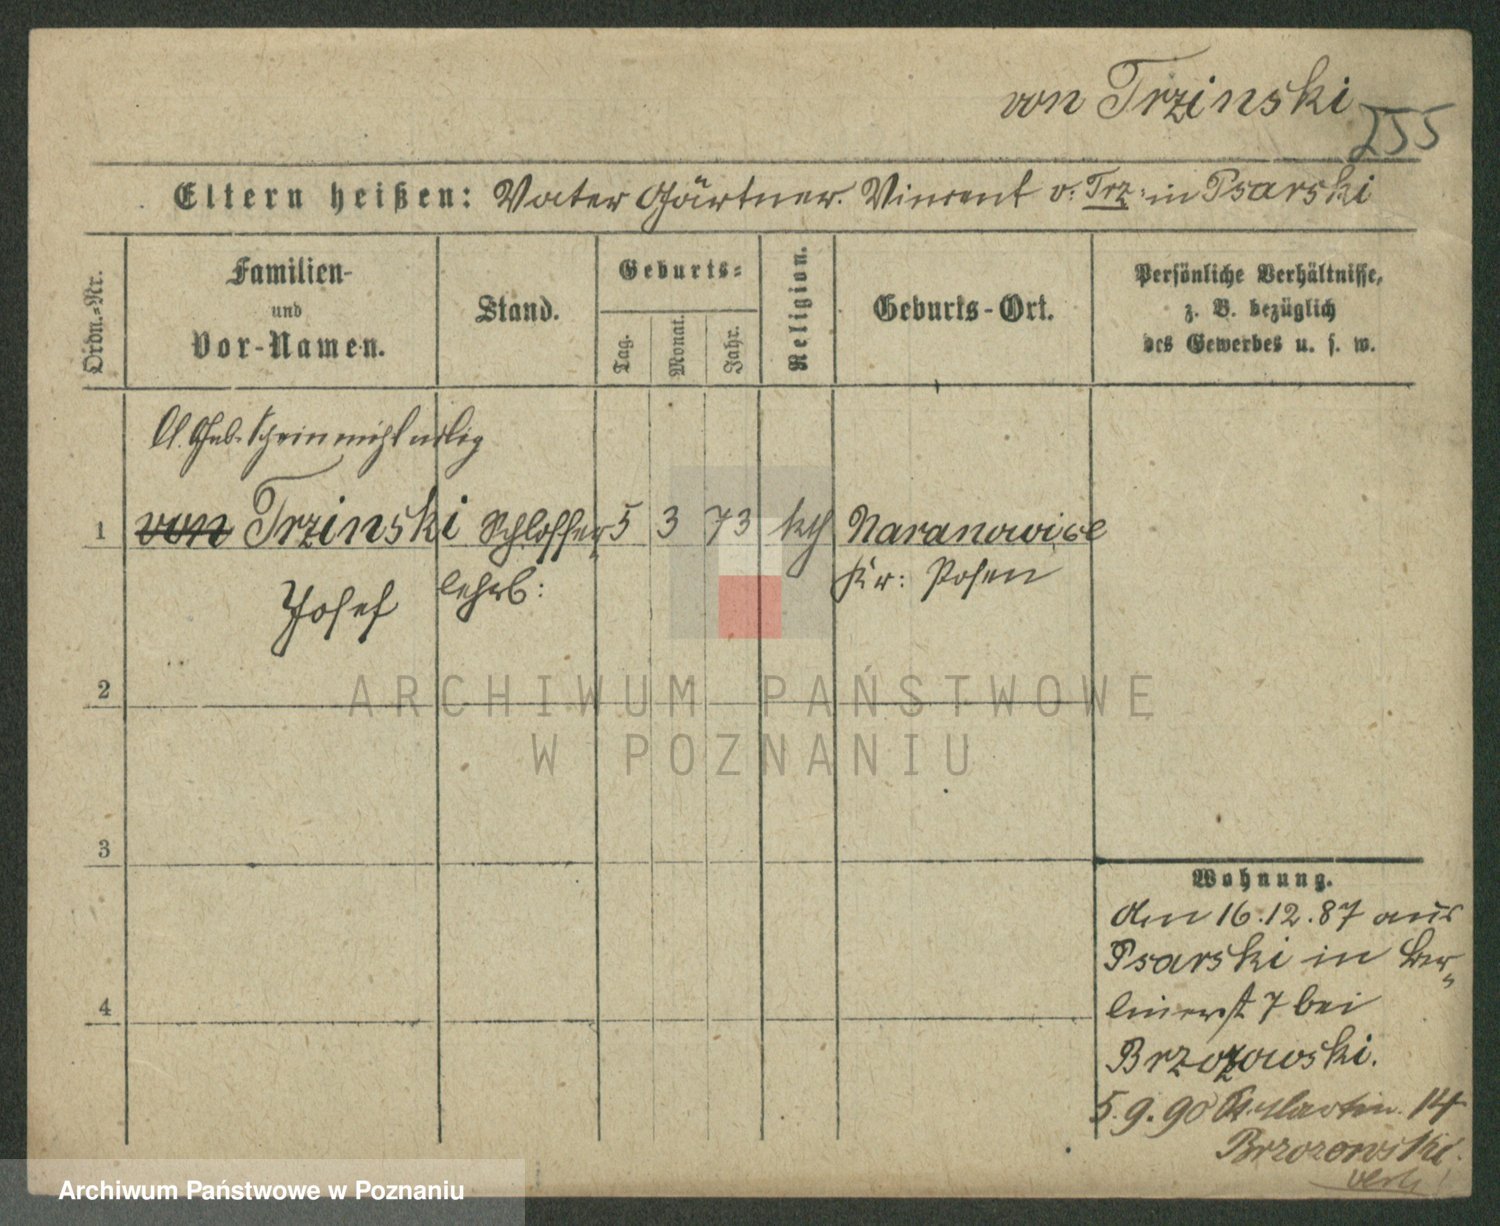 von Trzinski
255
Eltern heißen: Vater Gärtner Vincent v. Trz: in Psarski
Ordn.-Nr.
Familien-
und
Vor-Namen.
Stand.
Geburts-
Tag.
Monat.
Jahr.
Religion.
Geburts-Ort.
Persönliche Verhältnisse,
z. B. bezüglich
des Gewerbes u. s. w.
Geb. Schein nicht
1 von Trzinski Schlosser 5 3 73 kth Naranowice
Josef lehrl: Kr: Posen
2
3
4
Wohnung.
den 16.12.87 aus
Psarski in Ber-
linerst 7 bei
Brzozowski.
5.9.90 St. Martin. 14
Brzozowski.
ARCHIWUM PAŃSTWOWE
W POZNANIU
Archiwum Państwowe w Poznaniu